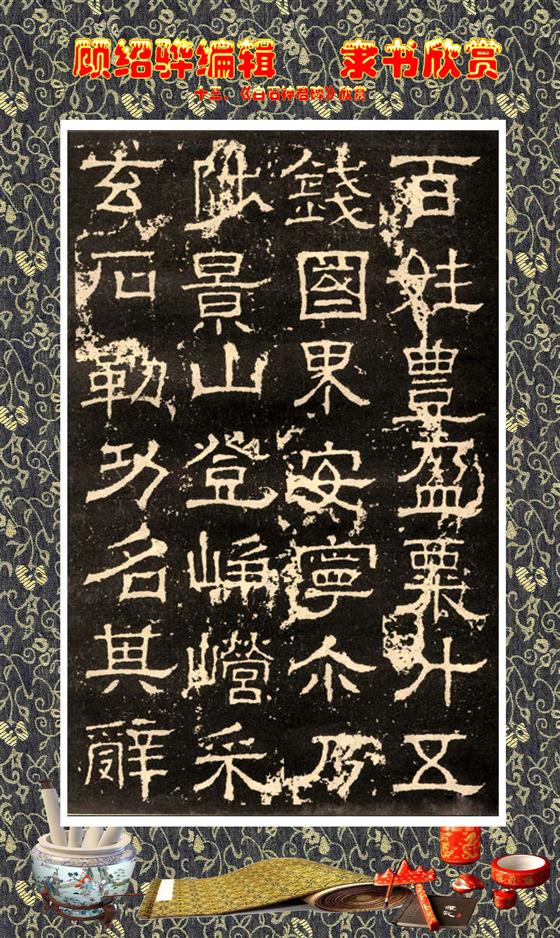 顾绍骅编辑 隶书欣赏
十三、《白石神君碑》欣赏
百姓豐盈粟升五
錢國界安寧尒乃
陟景山登峥嶸采
玄石勒功名其辭